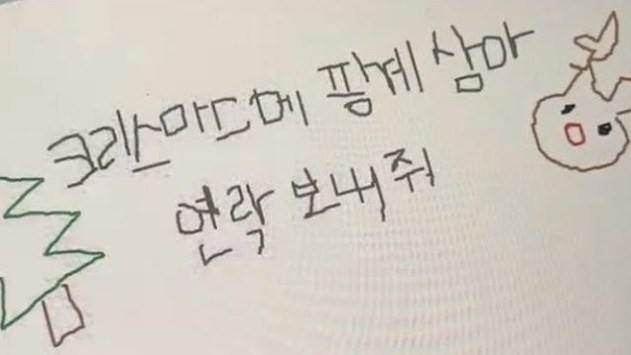 크라스마드에 핑계 삼아
연락 보내줘